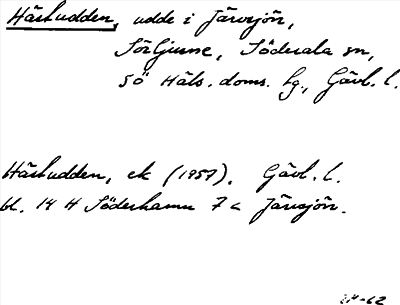 Hästudden, udde i Järvsjön,
Sörljusne, Söderala sn,
SÖ Häls. doms. tg., Gävl. l.
Hästudden, ek (1957). Gävl. l.
bl. 14 H Söderhamn 7 c Järvsjön.